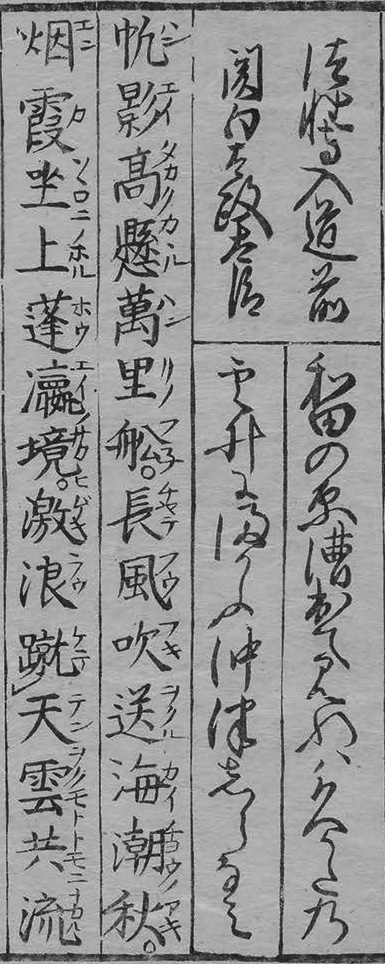 法性寺入道前
関白太政大臣
和田の原漕出てみれハ久かた乃
雲井にまかふ沖津志らなミ
帆影高懸萬里船。長風吹送海潮秋。
烟霞坐上蓬瀛境。激浪蹴天雲共流